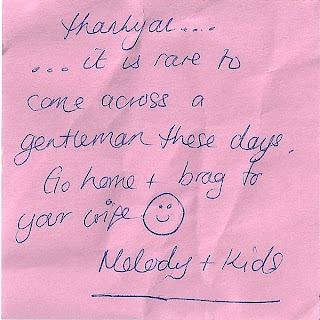 thankyou....
... it is rare to
come across a
gentleman these days.
Go home + brag to
your wife
Melody + Kids